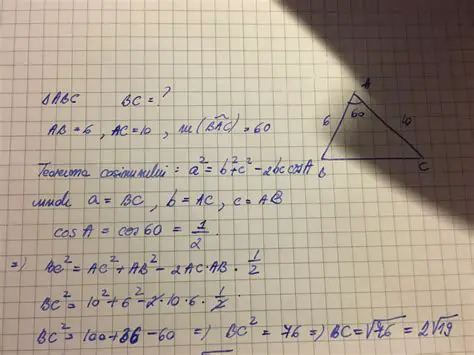 ΔABC BC = ?
AB = 6, AC = 10, m(BAC) = 60
Teorema cosinusului: a² = b² + c² - 2bc cosA
unde a = BC, b = AC, c = AB
cosA = cos60 = 1/2.
=) BC² = AC² + AB² - 2AC·AB · 1/2
BC² = 10² + 6² - 2·10·6· 1/2
BC² = 100 + 36 - 60 =) BC² = 76 =) BC = √76 = 2√19
A
60
6
10
B
C